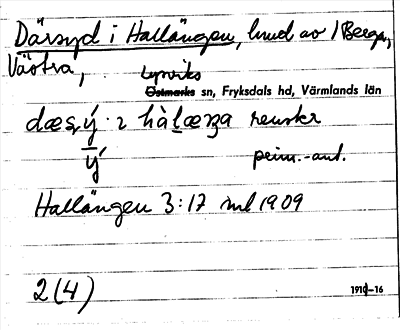 Därsyd i Hallängen, hmd av 1 Berga,
Västra,
Lysviks
Östmarks sn, Fryksdals hd, Värmlands län
ý
prim.-ant.
Hallängen 3:17 jrl 1909
2(4)
1910-16